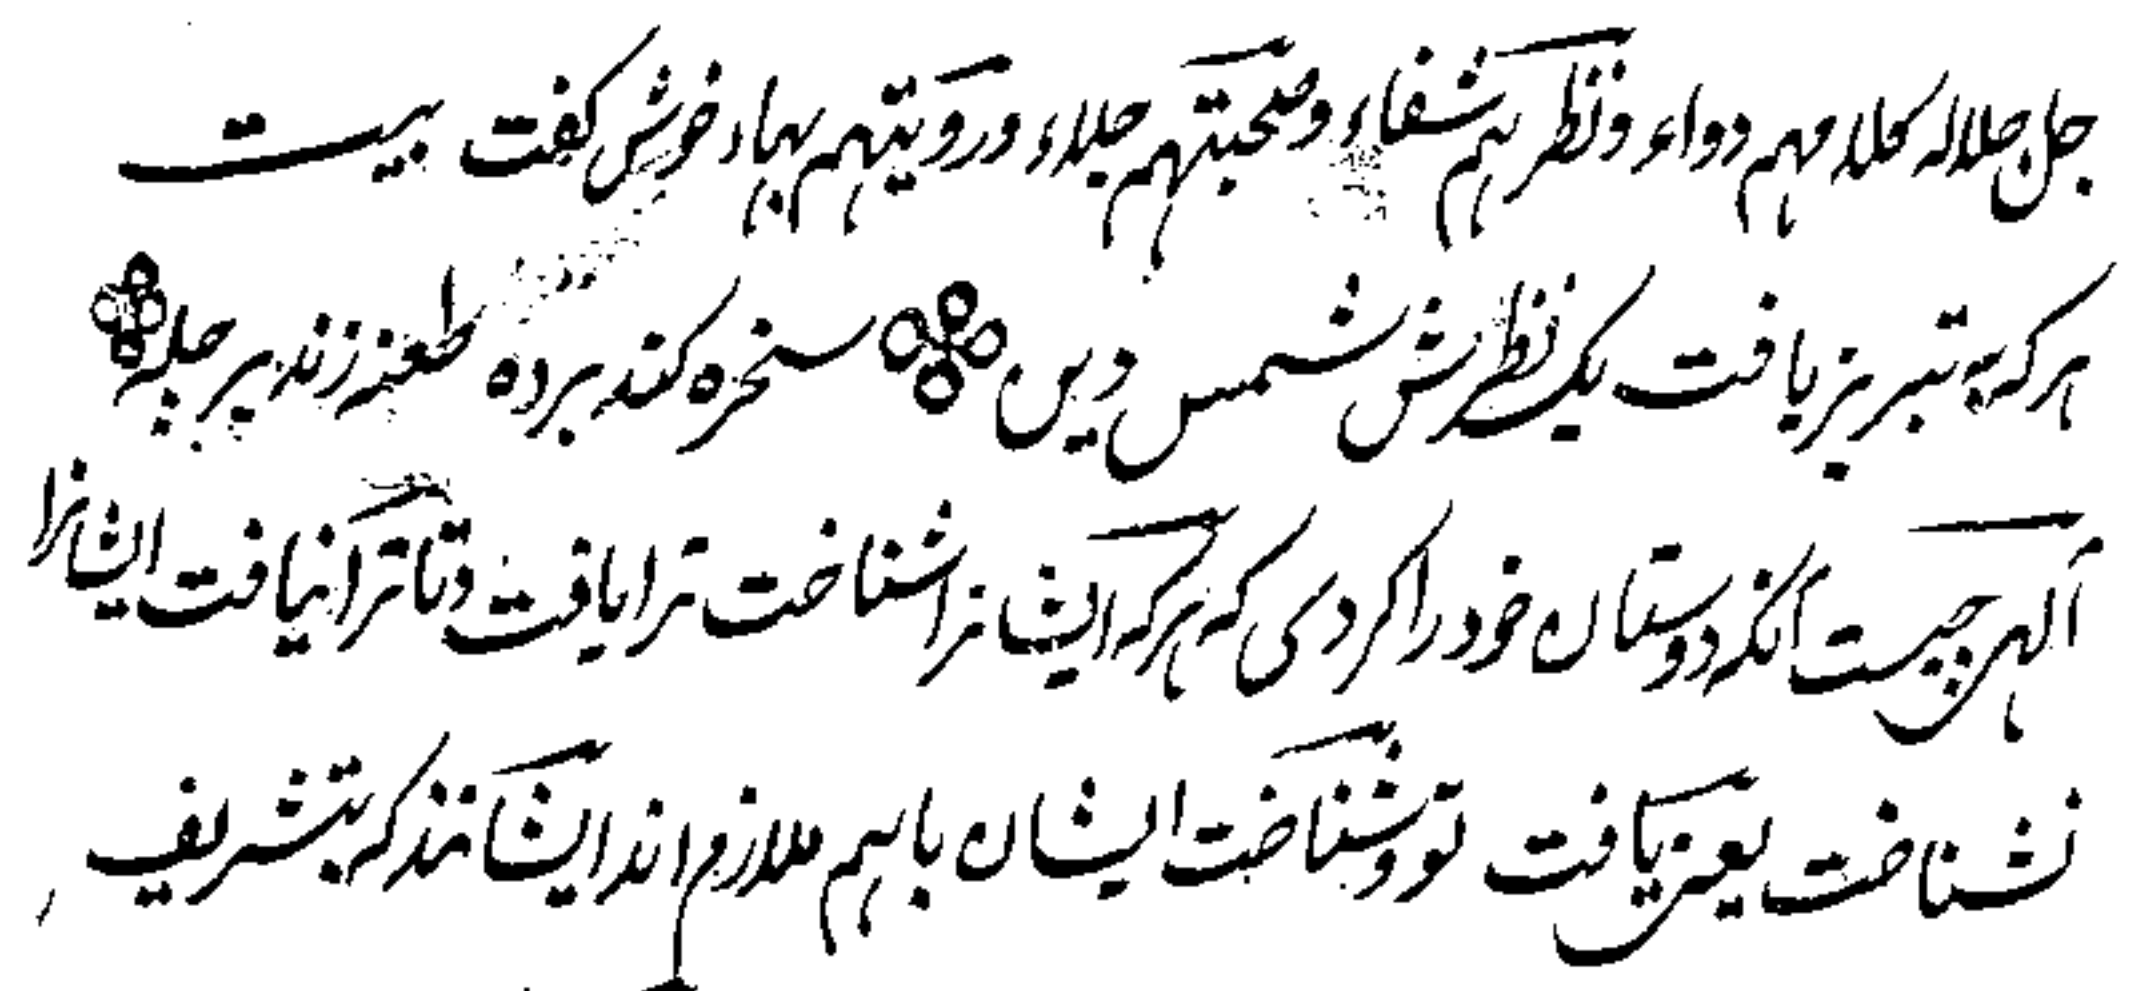 جل جلاله کلامهم دواء و نظرهم شفاء و صحبتهم جلاء و رویتهم بهاء خوش گفت بیت
هر که به تبریز یافت یک نظرش شمس دین سخره کند بر ده طعنه زند بر چله
الهی چیست آنکه دوستان خود را کردی که هر که ایشانرا شناخت ترا یافت و تا ترا نیافت ایشانرا
نشناخت یعنی یافت تو و شناخت ایشان باهم ملازم اند ایشانند که بتشریف